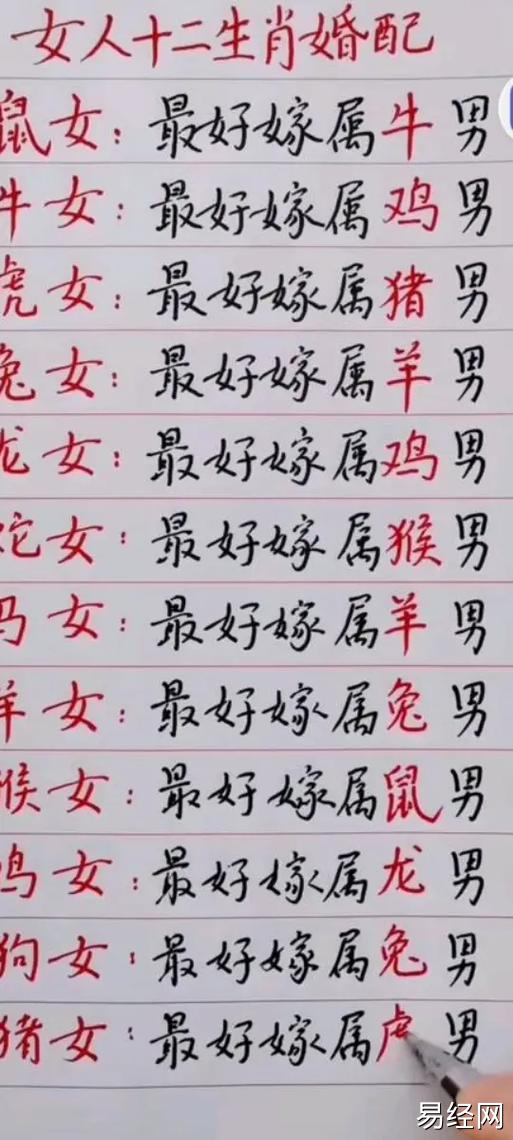 女人十二生肖婚配
鼠女：最好嫁属牛男
牛女：最好嫁属鸡男
虎女：最好嫁属猪男
兔女：最好嫁属羊男
龙女：最好嫁属鸡男
蛇女：最好嫁属猴男
马女：最好嫁属羊男
羊女：最好嫁属兔男
猴女：最好嫁属鼠男
鸡女：最好嫁属龙男
狗女：最好嫁属兔男
猪女：最好嫁属虎男
易经网